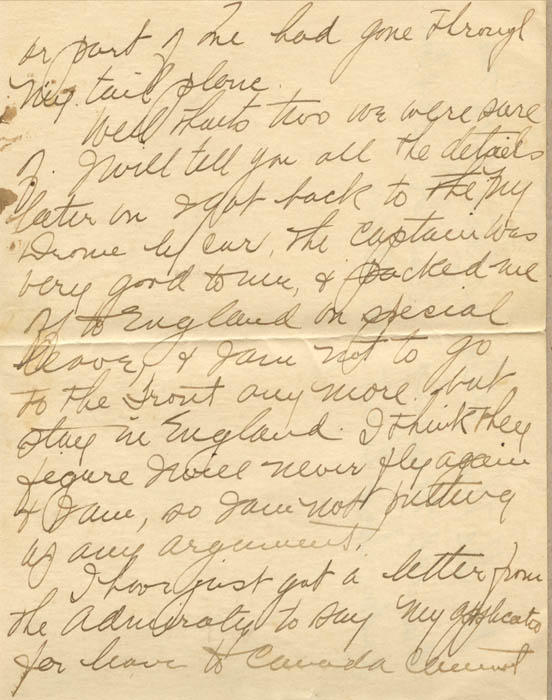 or part of one had gone through
my tail plane.
Well thats two we were sure
of. I will tell you all the details
later on I got back to the my
Drome by car, the captain was
very good to me, & packed me
of to England on special
leave, & I am not to go
to the Front any more. but
stay in England. I think they
figure I will never fly again
& I am, so I am not putting
up any argument.
I have just got a letter from
the Admiralty to say my
for leave to Canada cannot